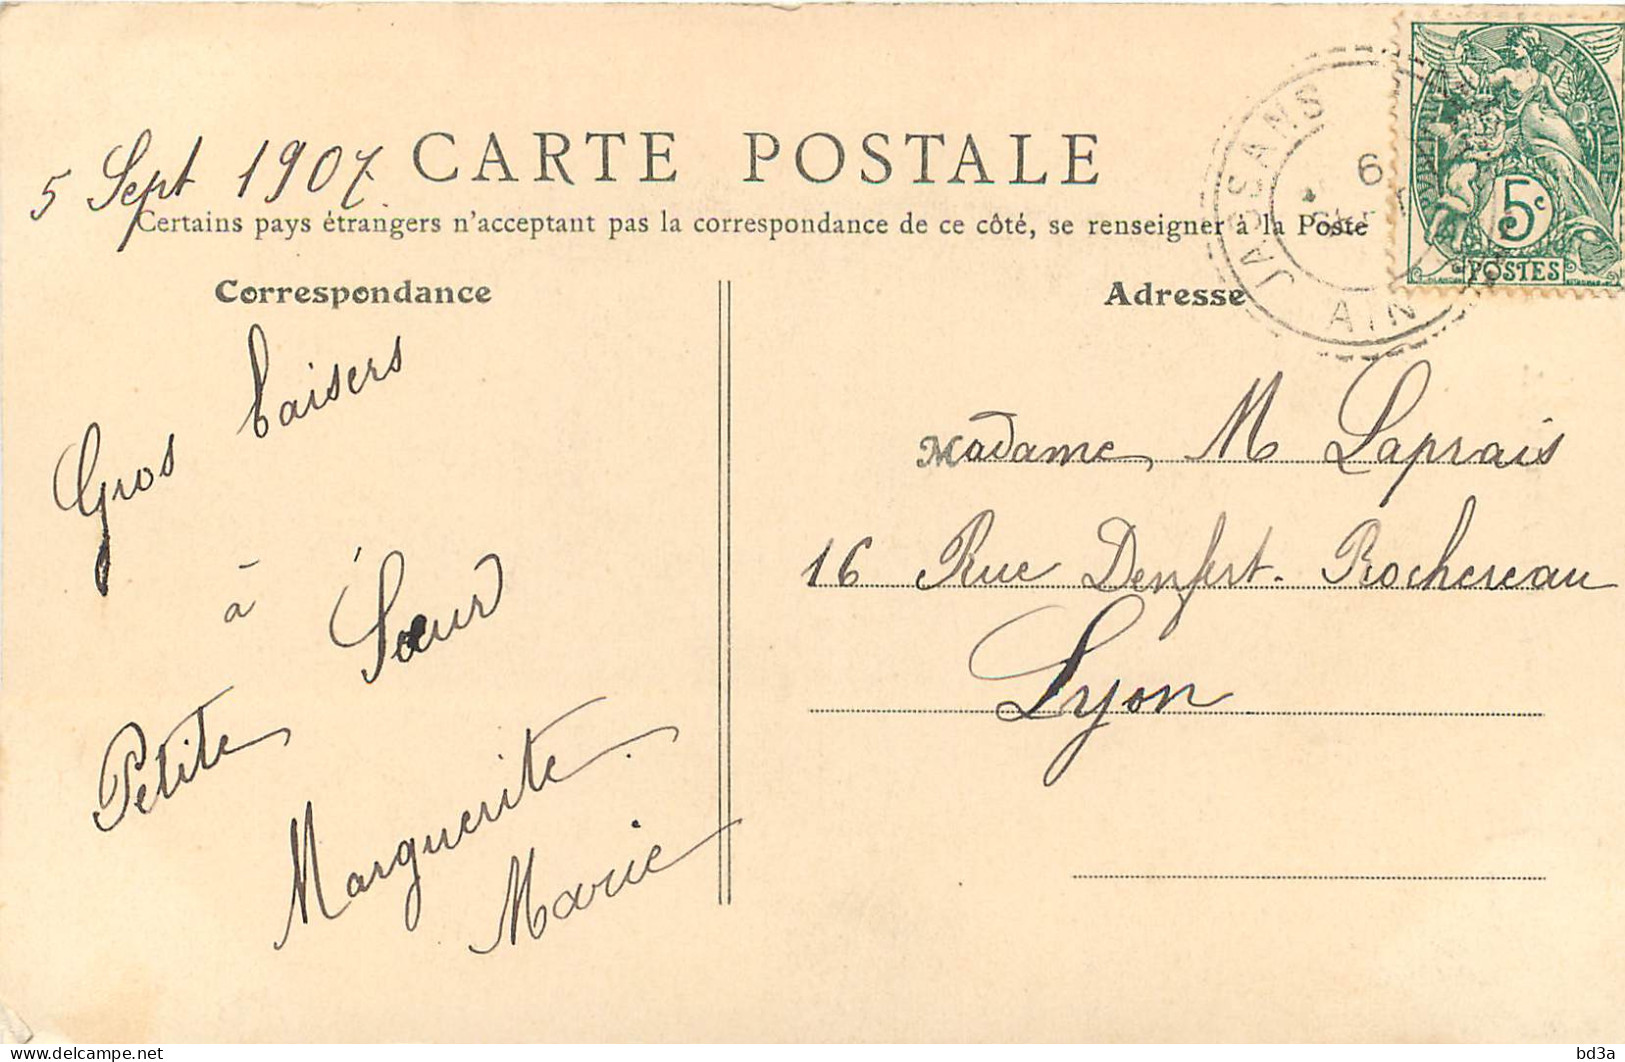 5 Sept 1907
CARTE POSTALE
Certains pays étrangers n'acceptent pas la correspondance de ce côté, se renseigner à la Poste
Correspondance
Gros baisers
à
Petite Sœur
Marguerite
Marie
Adresse
Madame M Laprais
16 Rue Denfert-Rochereau
Lyon
JASSANS
6
AIN
RÉPUBLIQUE FRANÇAISE
5c
POSTES
delcampe.net
bd3a